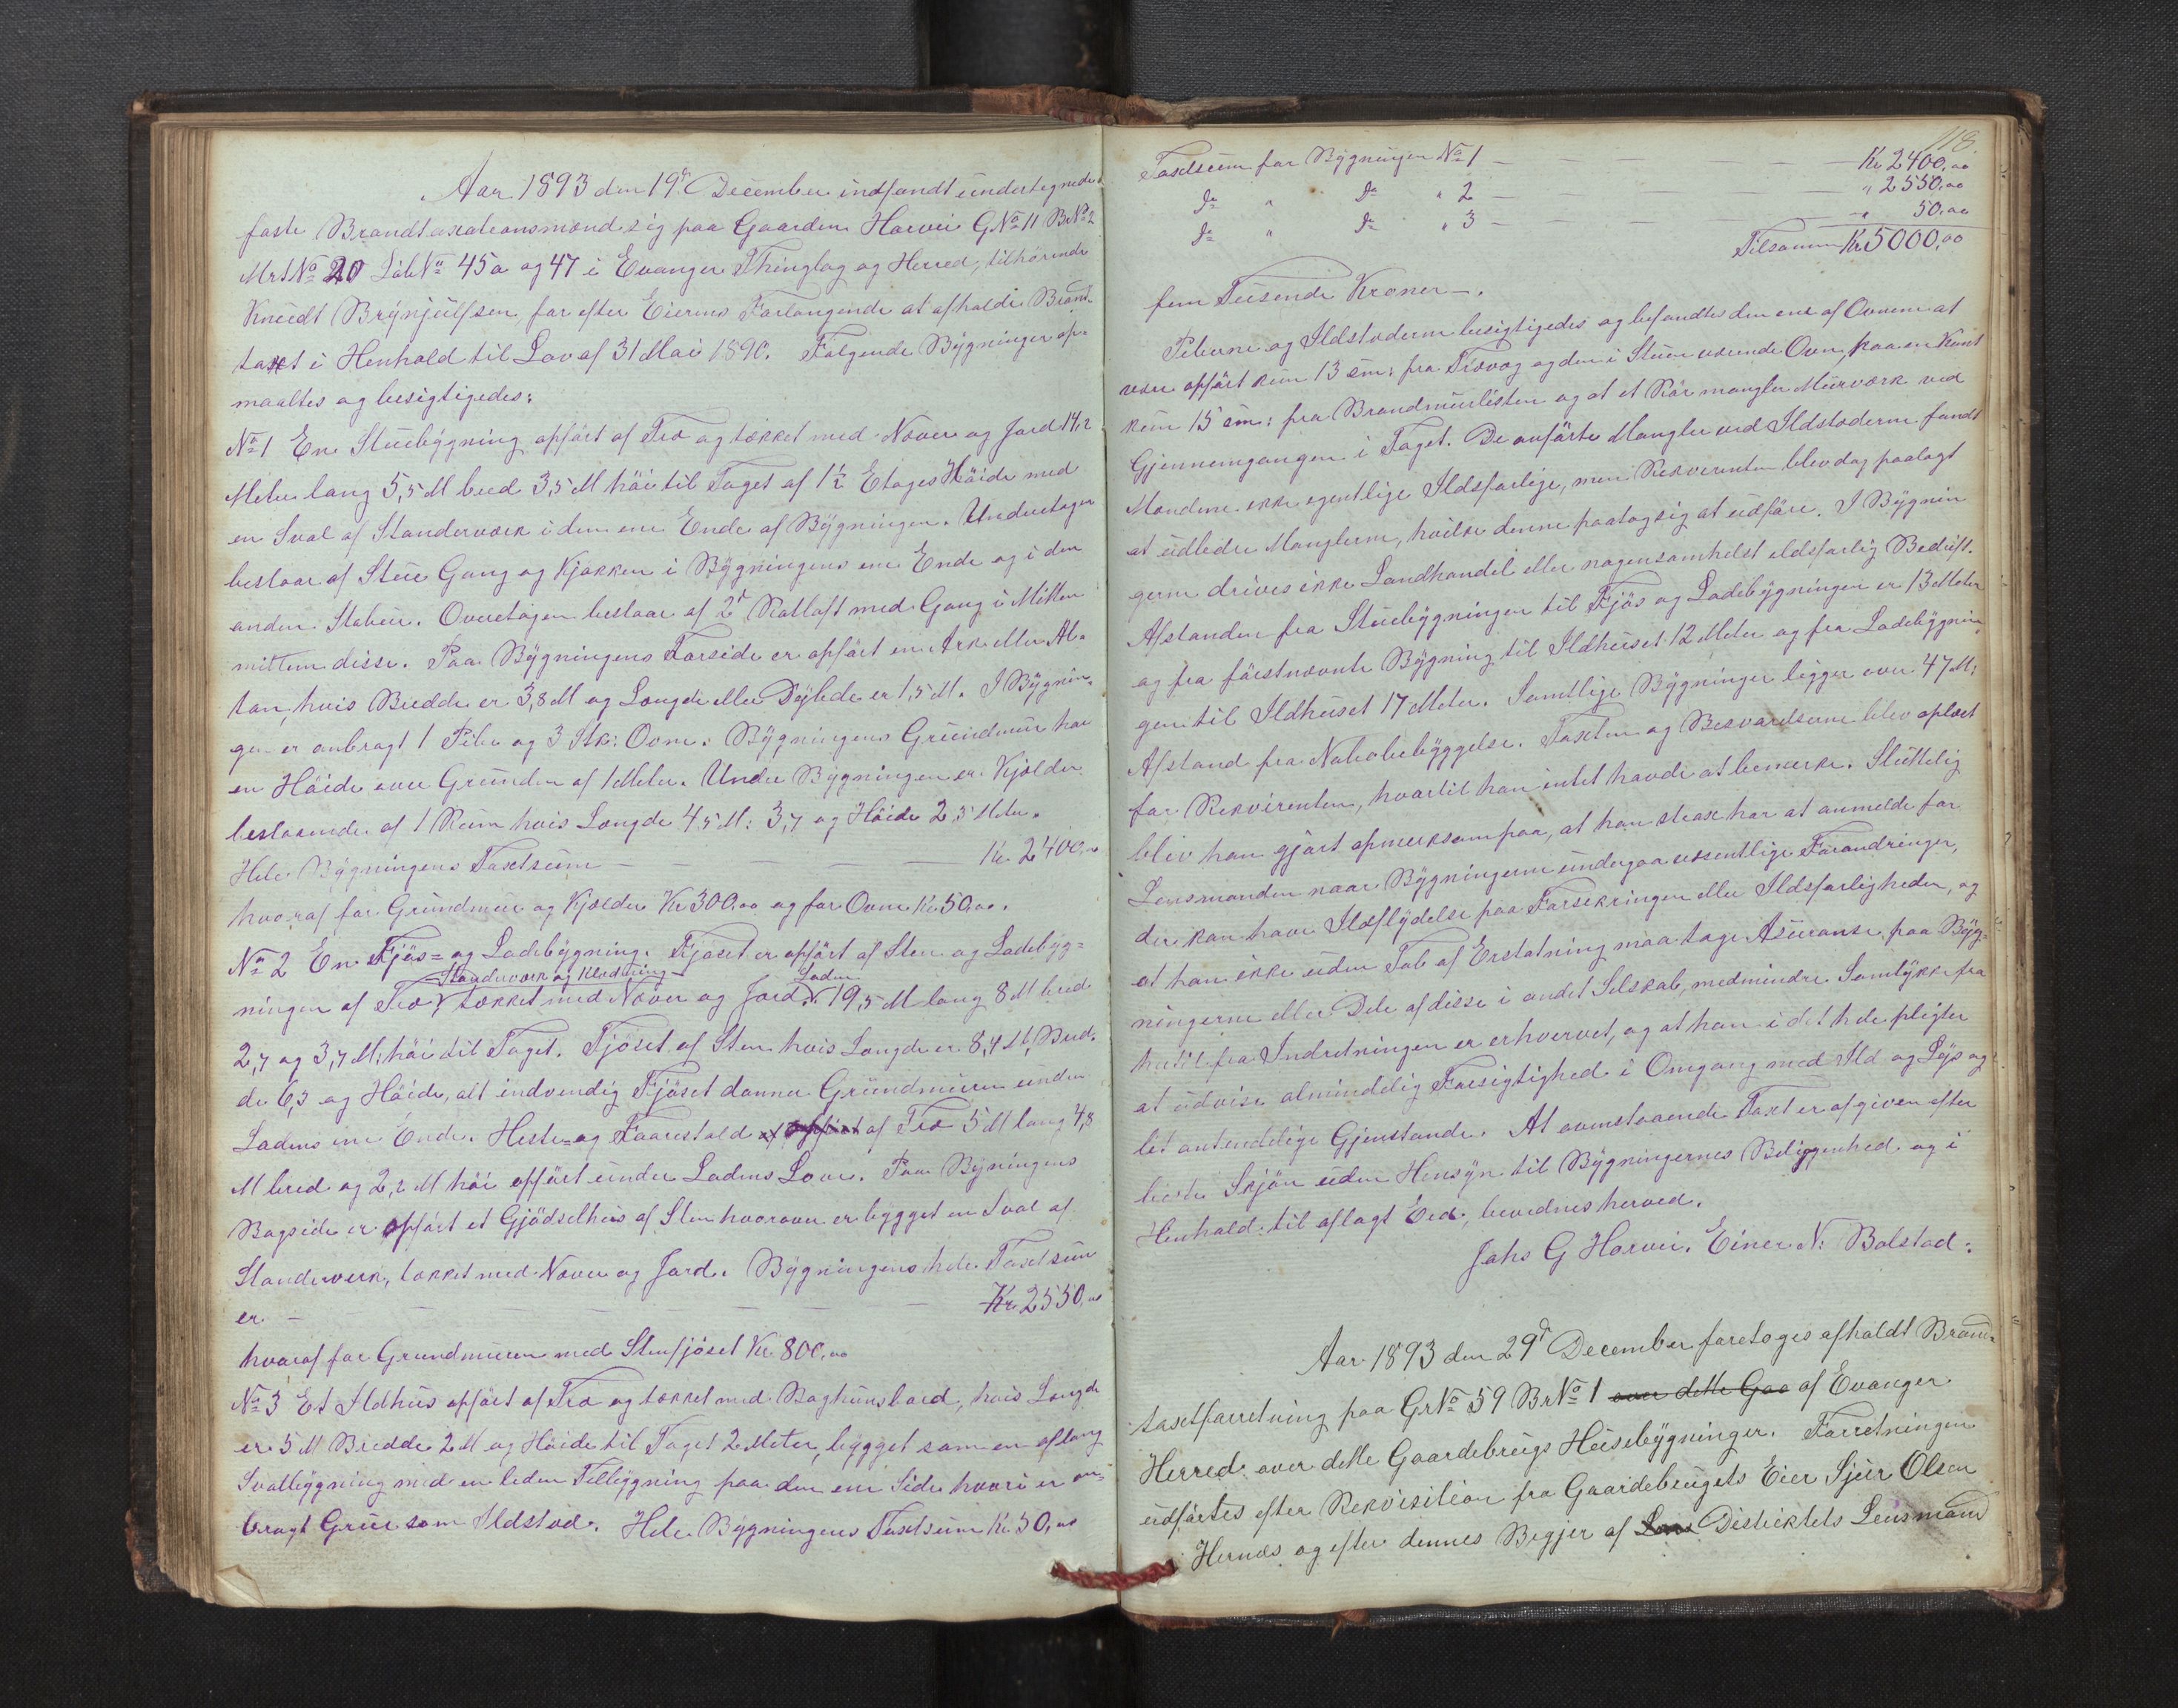 Aar 1893 den 19de December indfandt undertegnede
faste Brandtaxationsmænd sig paa Gaarden Horvei GNo 11 BrNo 2
MrtNo 20 LöbNo 45a og 47 i Evanger Thinglag og Herred, tilhörende
Knudt Brynjulfsen, for efter Eierens Forlangende at afholde Brand-
taxt i Henhold til Lov af 31 Mai 1890. Fölgende Bygninger op-
maaltes og besigtigedes:
No 1 En Stuebygning opfört af Træ og tækket med Næver og Jord 14,2
Meter lang 5,5 M bred 3,5 M höi til Taget af 1½ Etages Höide med
en Sval af Standerværk i den ene Ende af Bygningen. Underetagen
bestaar af Stue Gang og Kjøkken i Bygningens ene Ende og i den
anden Stabur. Overetagen bestaar af 2de Ratloft med Gang i Mitten
mittem disse. Paa Bygningens Forside er opfört en Ark eller Al-
tan, hvis Bredde er 3,8 M og Længde eller Dybde er 1,5 M. I Bygnin-
gen er anbragt 1 Pibe og 3 Stk: Ovne. Bygningens Grundmur har
en Höide over Grunden af 1 Meter. Under Bygningen er Kjælder
bestaaende af 1 Rum hvis Længde 4,5 M: 3,7 og Höide 2,5 Meter.
Hele Bygningens Taxtsum — — — — Kr. 2400,00
hvoraf for Grundmur og Kjælder Kr 300,00 og for Ovne Kr. 50,00.
No 2 En Fjös= og Ladebygning. Fjøset er opfört af Sten og Ladebyg=
Standerværk og Klædning Laden
ningen af Træ tækket med Næver og Jord. 19,5 M lang 8 M bred
2,7 og 3,7 M: höi til Taget. Fjöset af Sten hvis Længde er 8,4 M, Bred-
de 6,3 og Höide, alt indvendig Fjöset danner Grundmuren under
Ladens ene Ende. Heste= og Faarestald af opfört af Træ 5 M lang 4,8
M bred og 2,2 M höi opfört under Ladens Love. Paa Bygningens
Bagside er opfört et Gjödselhus af Sten hvorover er bygget en Sval af
Standerverk, tækket med Næver og Jord. Bygningens hele Taxtsum
er. — — — — — — Kr. 2550,00
hvoraf for Grundmuren med Stenfjöset Kr. 800,00
No 3 Et Ildhus opfört af Træ og tækket med Baghunsbord, hvis Længde
er 5 M Bredde 2 M og Höide til Taget 2 Meter, bygget som en aflang
Svalbygning med en liden Tilbygning paa den ene Side hvori er an-
bragt Grue som Ildsted. Hele Bygningens Taxtsum Kr 50,00
118.
Taxtsum for Bygningen No 1 — — — Kr 2400,00
Do " Do " 2 — — " 2550,00
Do " Do " 3 — — — " 50,00
Tilsammen Kr 5000,00
fem Tusende Kroner —.
Piberne og Ildstederne besigtigedes og befandtes den ene af Ovnene at
være opfört kun 13 cm: fra Trævæg og den i Stuen værende Ovn, paa en Kant
kun 15 cm: fra Brandmurlisten og at et Rör mangler Murværk ved
Gjennemgangen i Taget. De anförte Mangler ved Ildstederne fandt
Mændene ikke egentlige Ildsfarlige, men Rekvirenten blev dog paalagt
at udbedre Manglerne, hvilke denne paatog sig at udföre. I Bygnin
gerne drives ikke Landhandel eller nogensomhelst ildsfarlig Bedrift.
Afstanden fra Stuebygningen til Fjös og Ladebygningen er 13 Meter
og fra förstnævnte Bygning til Ildhuset 12 Meter og fra Ladebygnin
gen til Ildhuset 17 Meter. Samtlige Bygninger ligger over 47 M:
Afstand fra Nabobebyggelse. Taxten og Besvarelserne blev oplæst
for Rekvirenten, hvortil han intet havde at bemærke. Sluttelig
blev han gjört opmerksom paa, at han strax har at anmelde for
Lensmanden naar Bygningerne undergaa væsentlige Forandringer,
der kan have Indflydelse paa Forsikringen eller Ildsfarligheden, og
at han ikke uden Tab af Erstatning maa tage Assurance paa Byg-
ningerne eller Dele af disse i andet Selskab, medmindre Samtykke fra
hertil fra Indretningen er erhvervet, og at han i det hele pligter
at udvise almindelig Forsigtighed i Omgang med Ild og Lys og
let antændelige Gjenstande. At ovenstaaende Taxt er afgiven efter
bedste Skjön uden Hensyn til Bygningernes Beliggenhed og i
Henhold til aflagt Eed, bevidnes herved.
Johs G Horvei. Einar N: Bolstad.
Aar 1893 den 29de December foretoges afholdt Brand-
taxtforretning paa GrNo 59 BrNo 1 over dette Gaa af Evanger
Herred over dette Gaardsbrugs Husebygninger. Forretningen
udförtes efter Rekvisition fra Gaardsbrugets Eier Sjur Olsen
Hernes og efter dennes Begjer af Lens Distriktets Lensmand